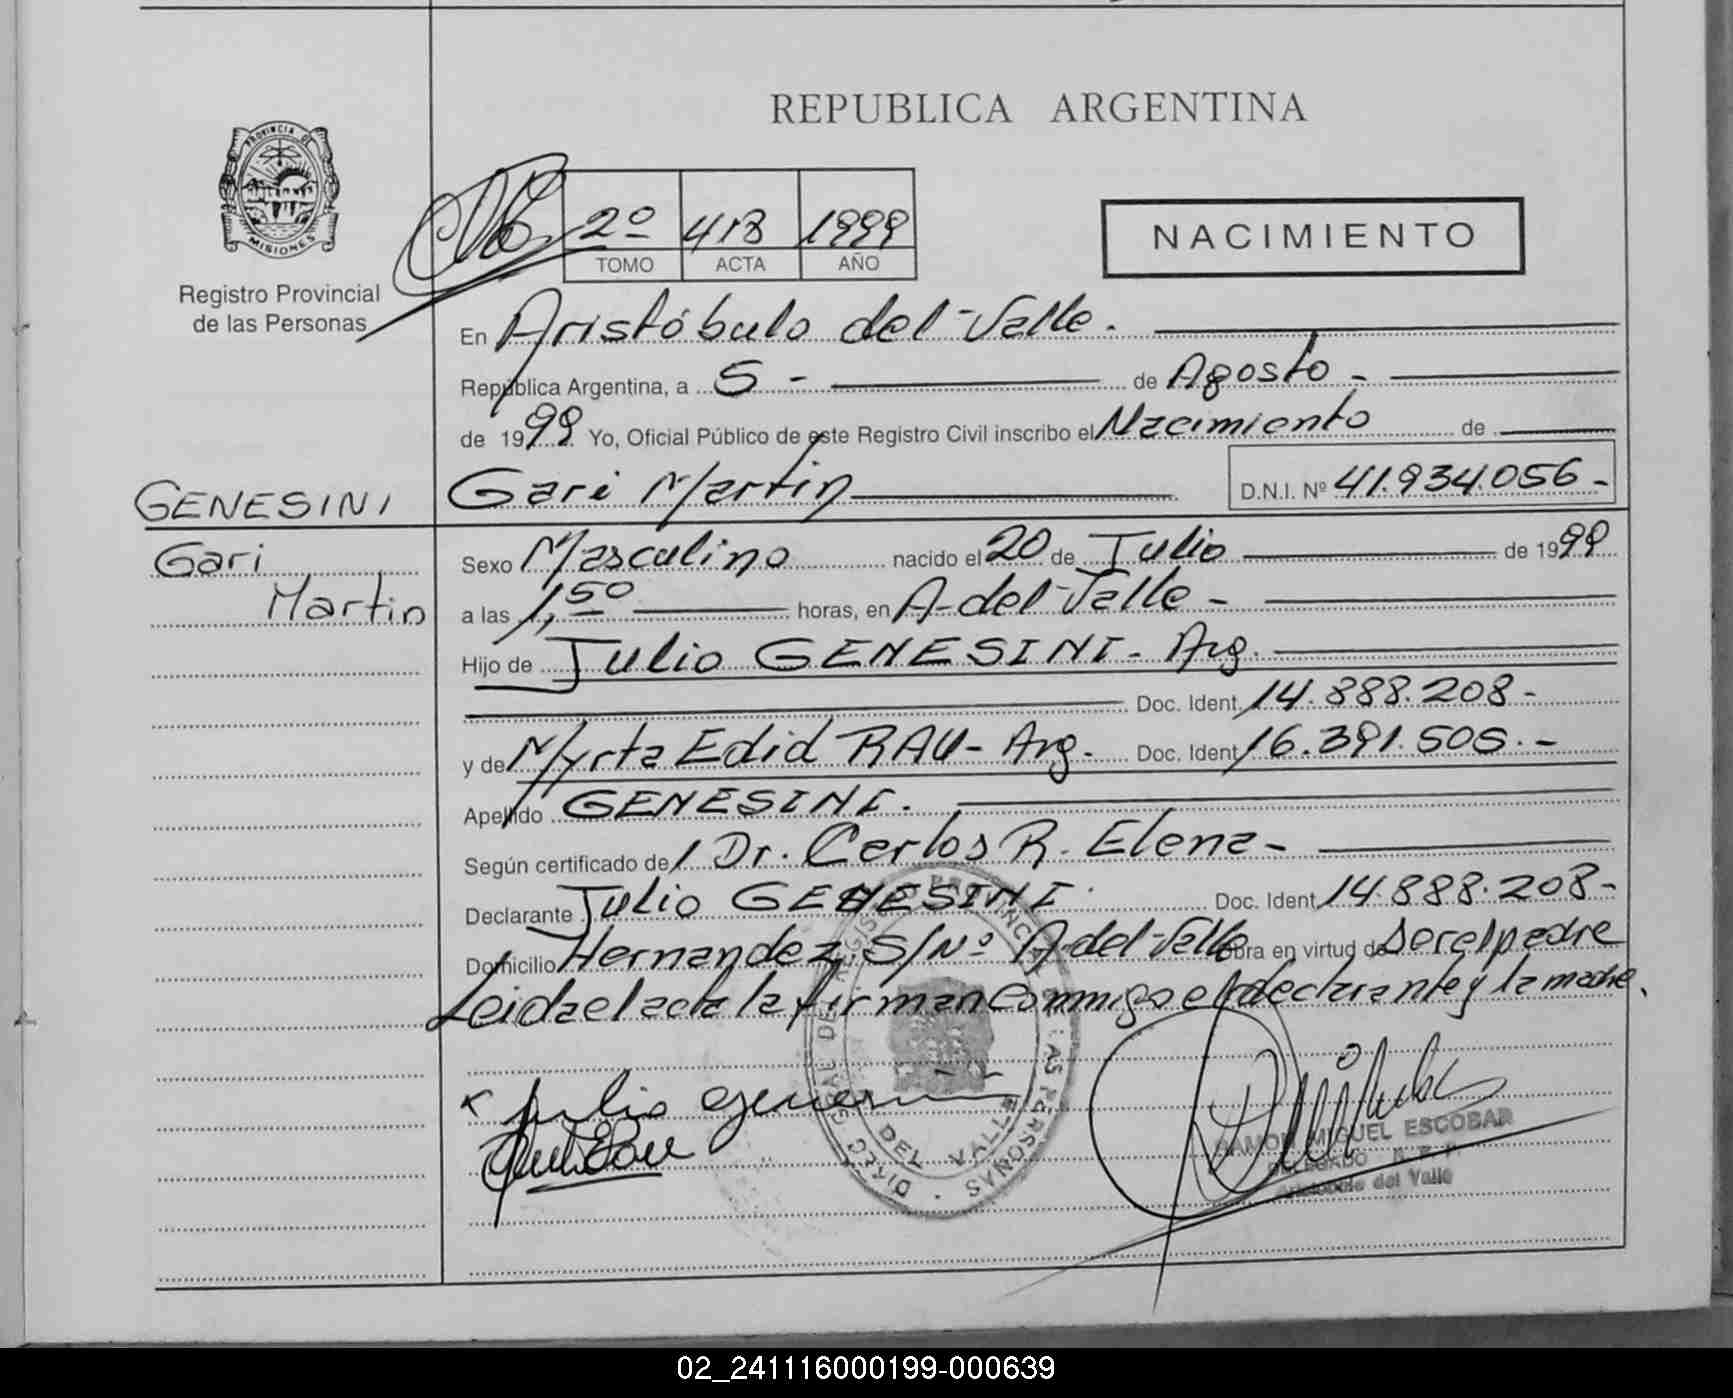 REPUBLICA ARGENTINA
PROVINCIA DE
MISIONES
Registro Provincial
de las Personas
2º 418 1999
TOMO ACTA AÑO
NACIMIENTO
En Aristóbulo del Valle.
República Argentina, a 5 - de Agosto -
de 1999 Yo, Oficial Público de este Registro Civil inscribo el Nacimiento de
GENESINI
Gari Martin D.N.I. Nº 41.934.056-
Gari
Martin
Sexo Masculino nacido el 20 de Julio de 1999
a las 1,50 horas, en A-del-Valle -
Hijo de Julio GENESINI - Arg.
Doc. Ident. 14.888.208-
y de Myrta Edid RAU - Arg. Doc. Ident 16.391.505.-
Apellido GENESINI.
Según certificado de Dr. Carlos R. Elena-
Declarante Julio GENESINI Doc. Ident 14.888.208-
Domicilio Hernandez S/Nº A-del-Valle Obra en virtud de ser el padre
Leida el acta la firman conmigo el declarante y la madre.
Julio Genesini
RAMON MIGUEL ESCOBAR
DELEGADO R. P. P.
Aristobulo del Valle
DIREC. GRAL. DE REGISTRO PROVINCIAL DE LAS PERSONAS
DEL VALLE
02_241116000199-000639